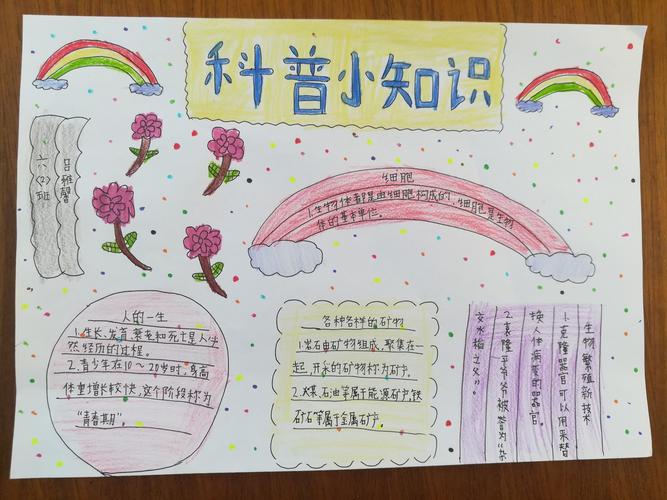 科普小知识
六(2)班
吕雅馨
细胞
1.生物体都是由细胞构成的,细胞是生物
体的基本单位。
人的一生
1.生长、发育、衰老和死亡是人生
然经历的过程。
2.青少年在10～20岁时,身高
体重增长较快,这个阶段称为
"青春期"。
各种各样的矿物
1.岩石由矿物组成,聚集在一
起,开采的矿物称为矿产。
2.煤、石油等属于能源矿产,铁
矿石等属于金属矿产。
生物繁殖新技术
1.克隆器官可以用来替
换人体病变的器官。
2.袁隆平爷爷被誉为"杂
交水稻之父"。